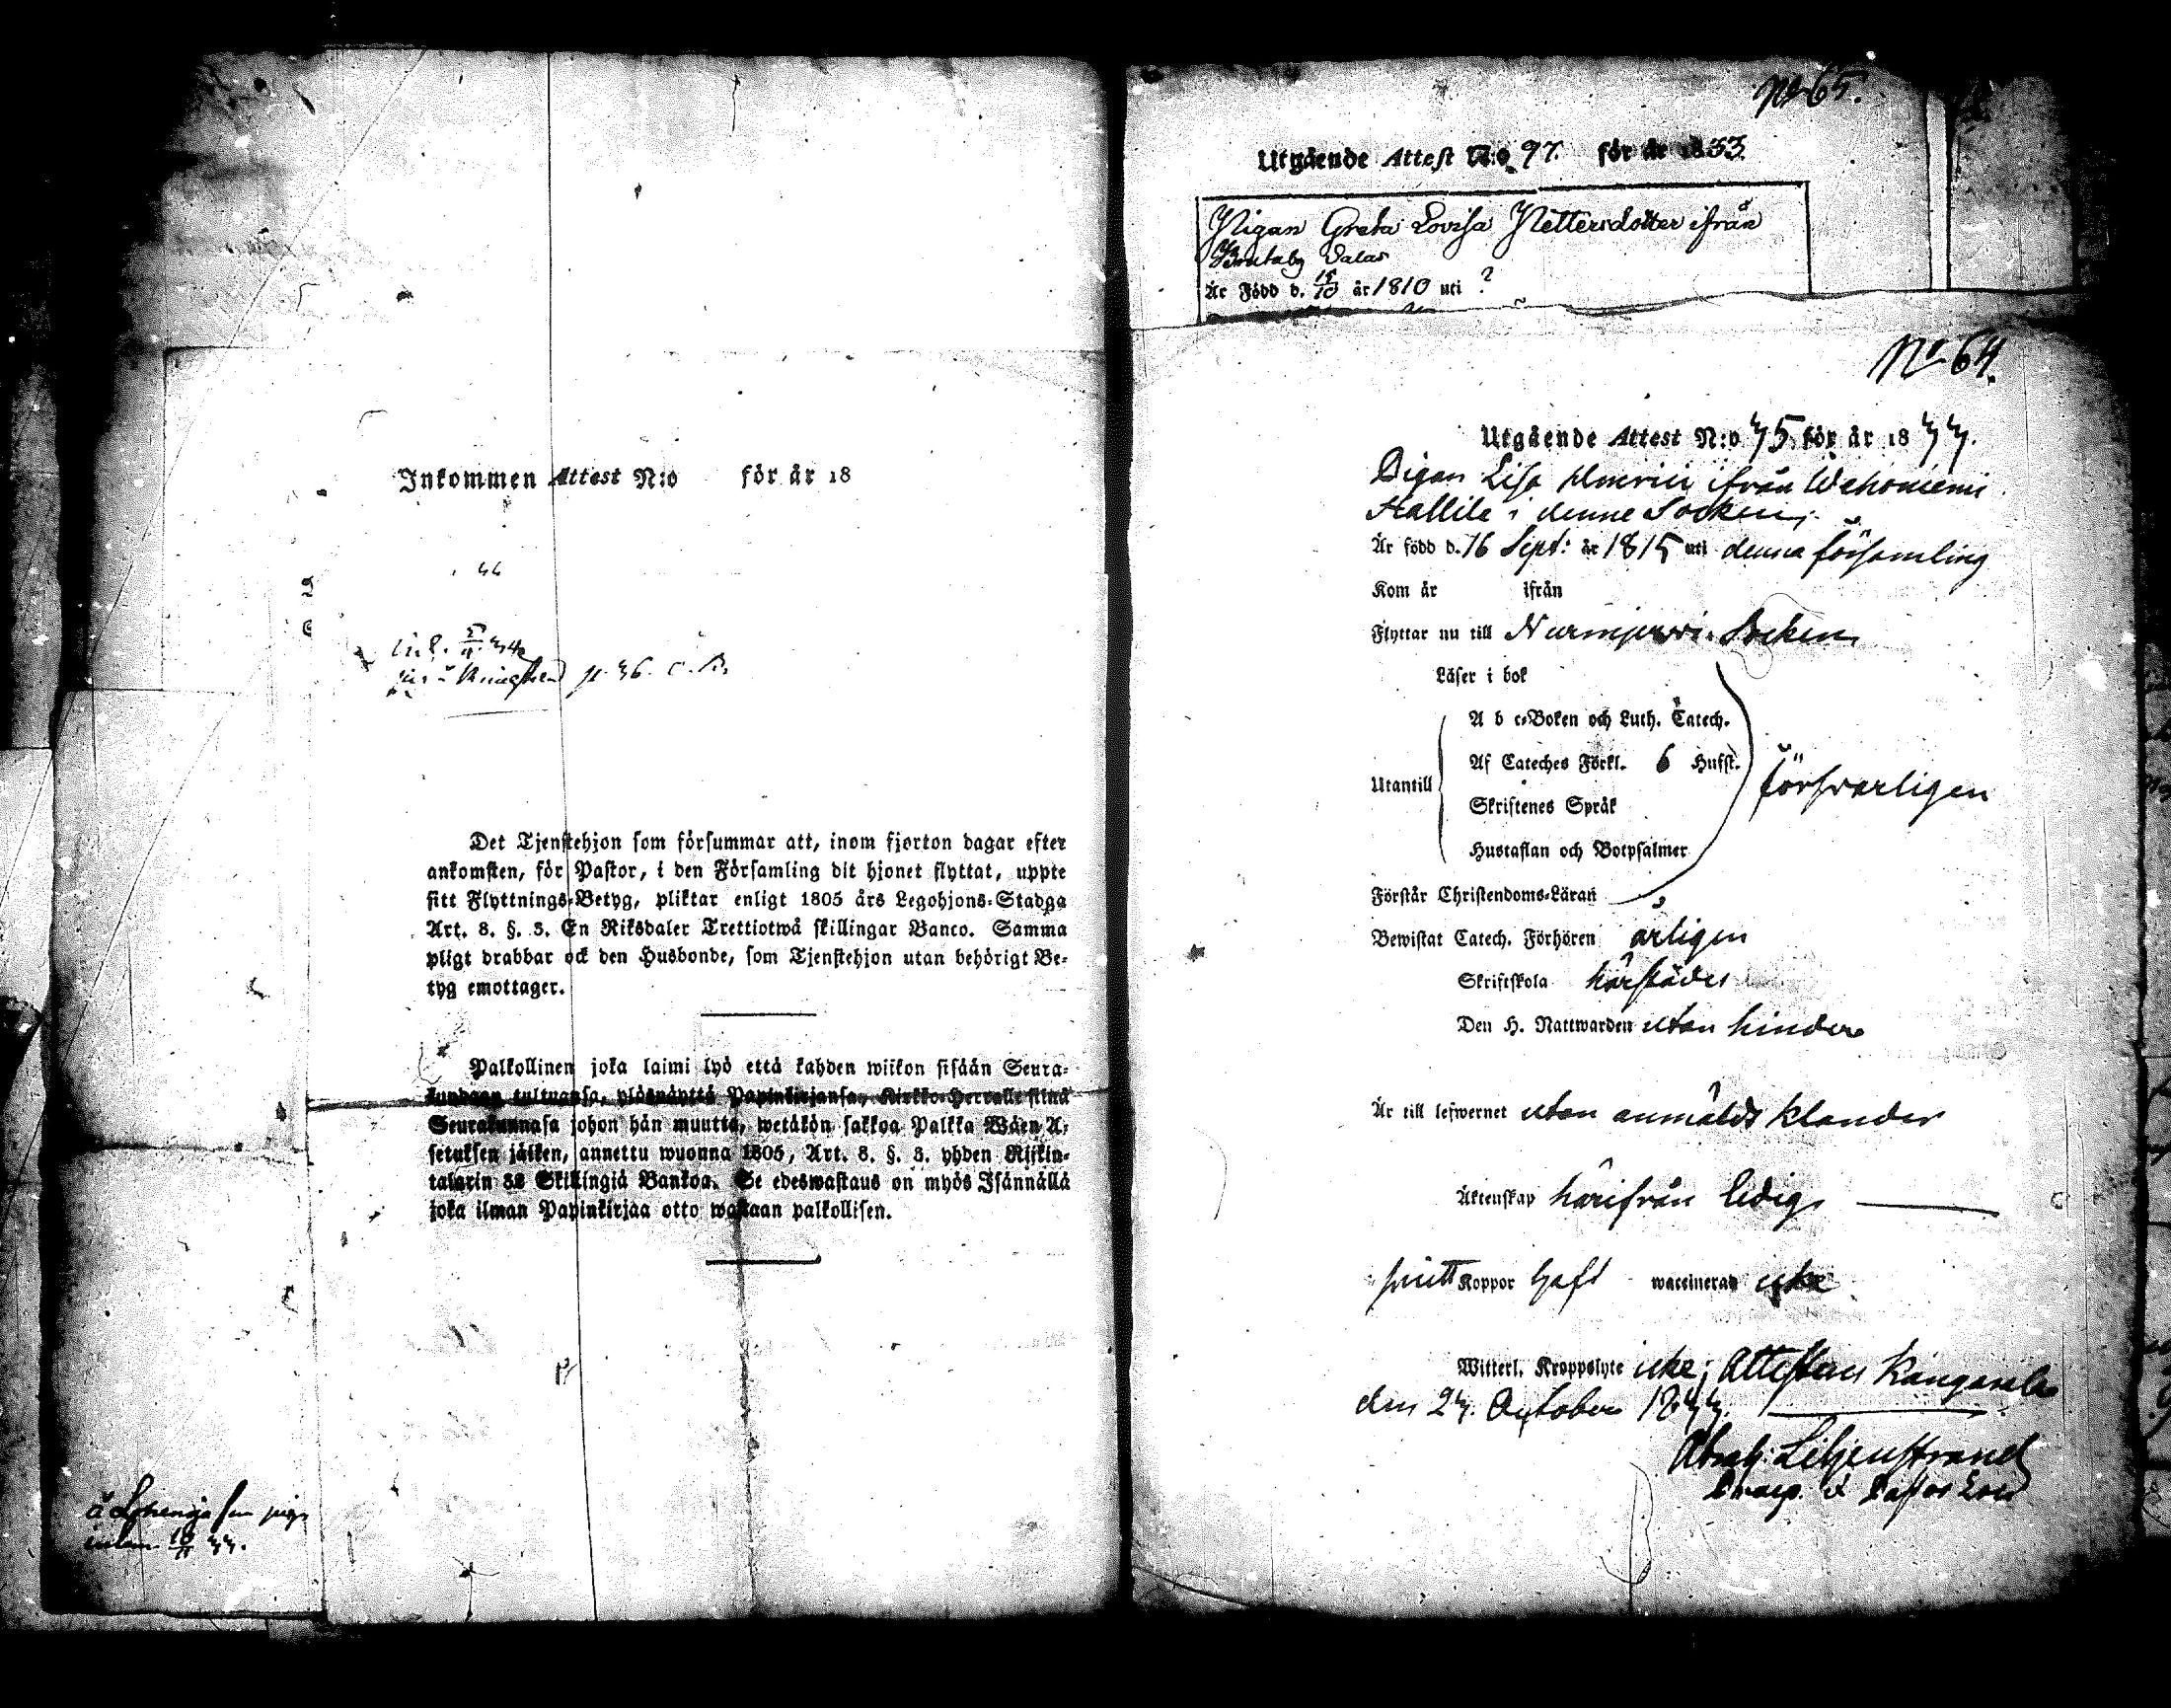 Inkommen Attest N:o för år 18
44
Det Tjenstehjon som försummar att, inom fjorton dagar efter
ankomsten, för Pastor, i den Församling dit hjonet flyttat, uppte
sitt Flyttnings-Betyg, pliktar enligt 1805 års Legohjons-Stadga
Art. 8. §. 3. En Riksdaler Trettiotwå skillingar Banco. Samma
pligt drabbar ock den Husbonde, som Tjenstehjon utan behörigt Be-
tyg emottager.
Palkollinen joka laimi lyö että kahden wiikon sisään Seura-
kundaan tultuansa, ylösnäyttä Papinkirjansa, Kirkko-Herralle siinä
Seurakunnasa johon hän muutta, wetäkön sakkoa Palkka Wäen A-
setuksen jälken, annettu wuonna 1805, Art. 8. §. 3. yhden Rijkin-
talarin 32 Skillingiä Bankoa. Se edeswastaus on myös Isännällä
joka ilman Papinkirjaa otto wastaan palkollisen.
No 65.
Utgående Attest N:o 97. för år 1833.
Pigan Greta Lovisa Pettersdotter ifrån
Är Född d. 15/10 år 1810 uti ?
No 64.
Utgående Attest N:o 45 för år 1844.
Pigan Lisa Henrici ifrån Wehoniemi
Kallila i denne Socken;
Är född d. 16 Sept: år 1815 uti denna församling
Kom år ifrån
Flyttar nu till Nurmijerwi Socken
Läser i bok
A b c-Boken och Luth. Catech.
Af Cateches Förkl. 6 Hufst.
Utantill
försvarligen
Skriftenes Språk
Hustaflan och Botpsalmer
Förstår Christendoms-Läran
Bewistat Catech. Förhören årligen
Skriftskola härstädes
Den H. Nattwarden utan hinder
Är till lefwernet utan anmäldt klander
Äktenskap härifrån ledig
Koppor haft waccinerad icke
Witterl. Kroppslyte icke; Attesteras Kangasala
den 24. October 1844.
Abrah: Liljenstrand